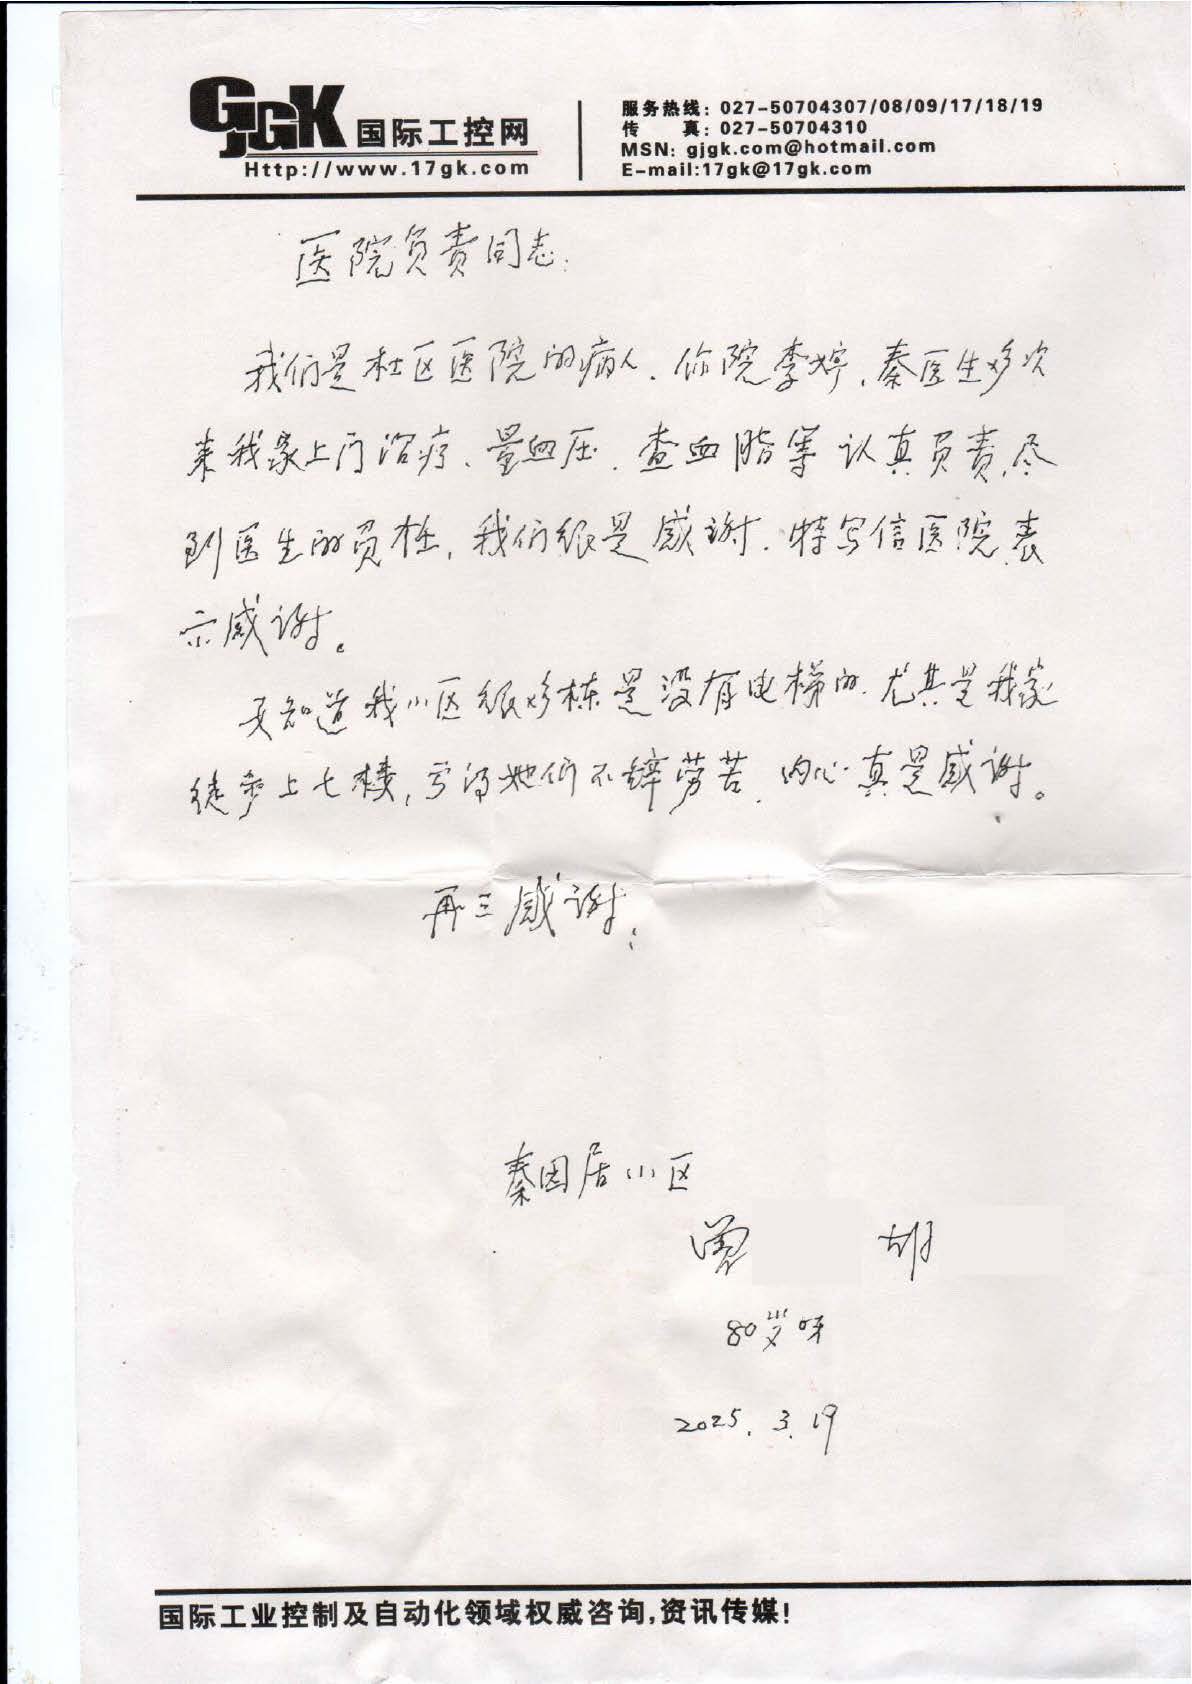 GJGK 国际工控网
Http://www.17gk.com
服务热线：027-50704307/08/09/17/18/19
传　真：027-50704310
MSN：gjgk.com@hotmail.com
E-mail:17gk@17gk.com
医院负责同志：
我们是社区医院的病人、你院李婷、秦医生多次
来我家上门治疗、量血压、查血脂等认真负责、尽
到医生的责任，我们很是感谢、特写信医院表
示感谢。
要知道我小区很多栋是没有电梯的、尤其是我家
徒步上七楼，亏得她们不辞劳苦、内心真是感谢。
再三感谢！
秦园居小区
曾 胡
80岁
2025.3.19
国际工业控制及自动化领域权威咨询,资讯传媒!